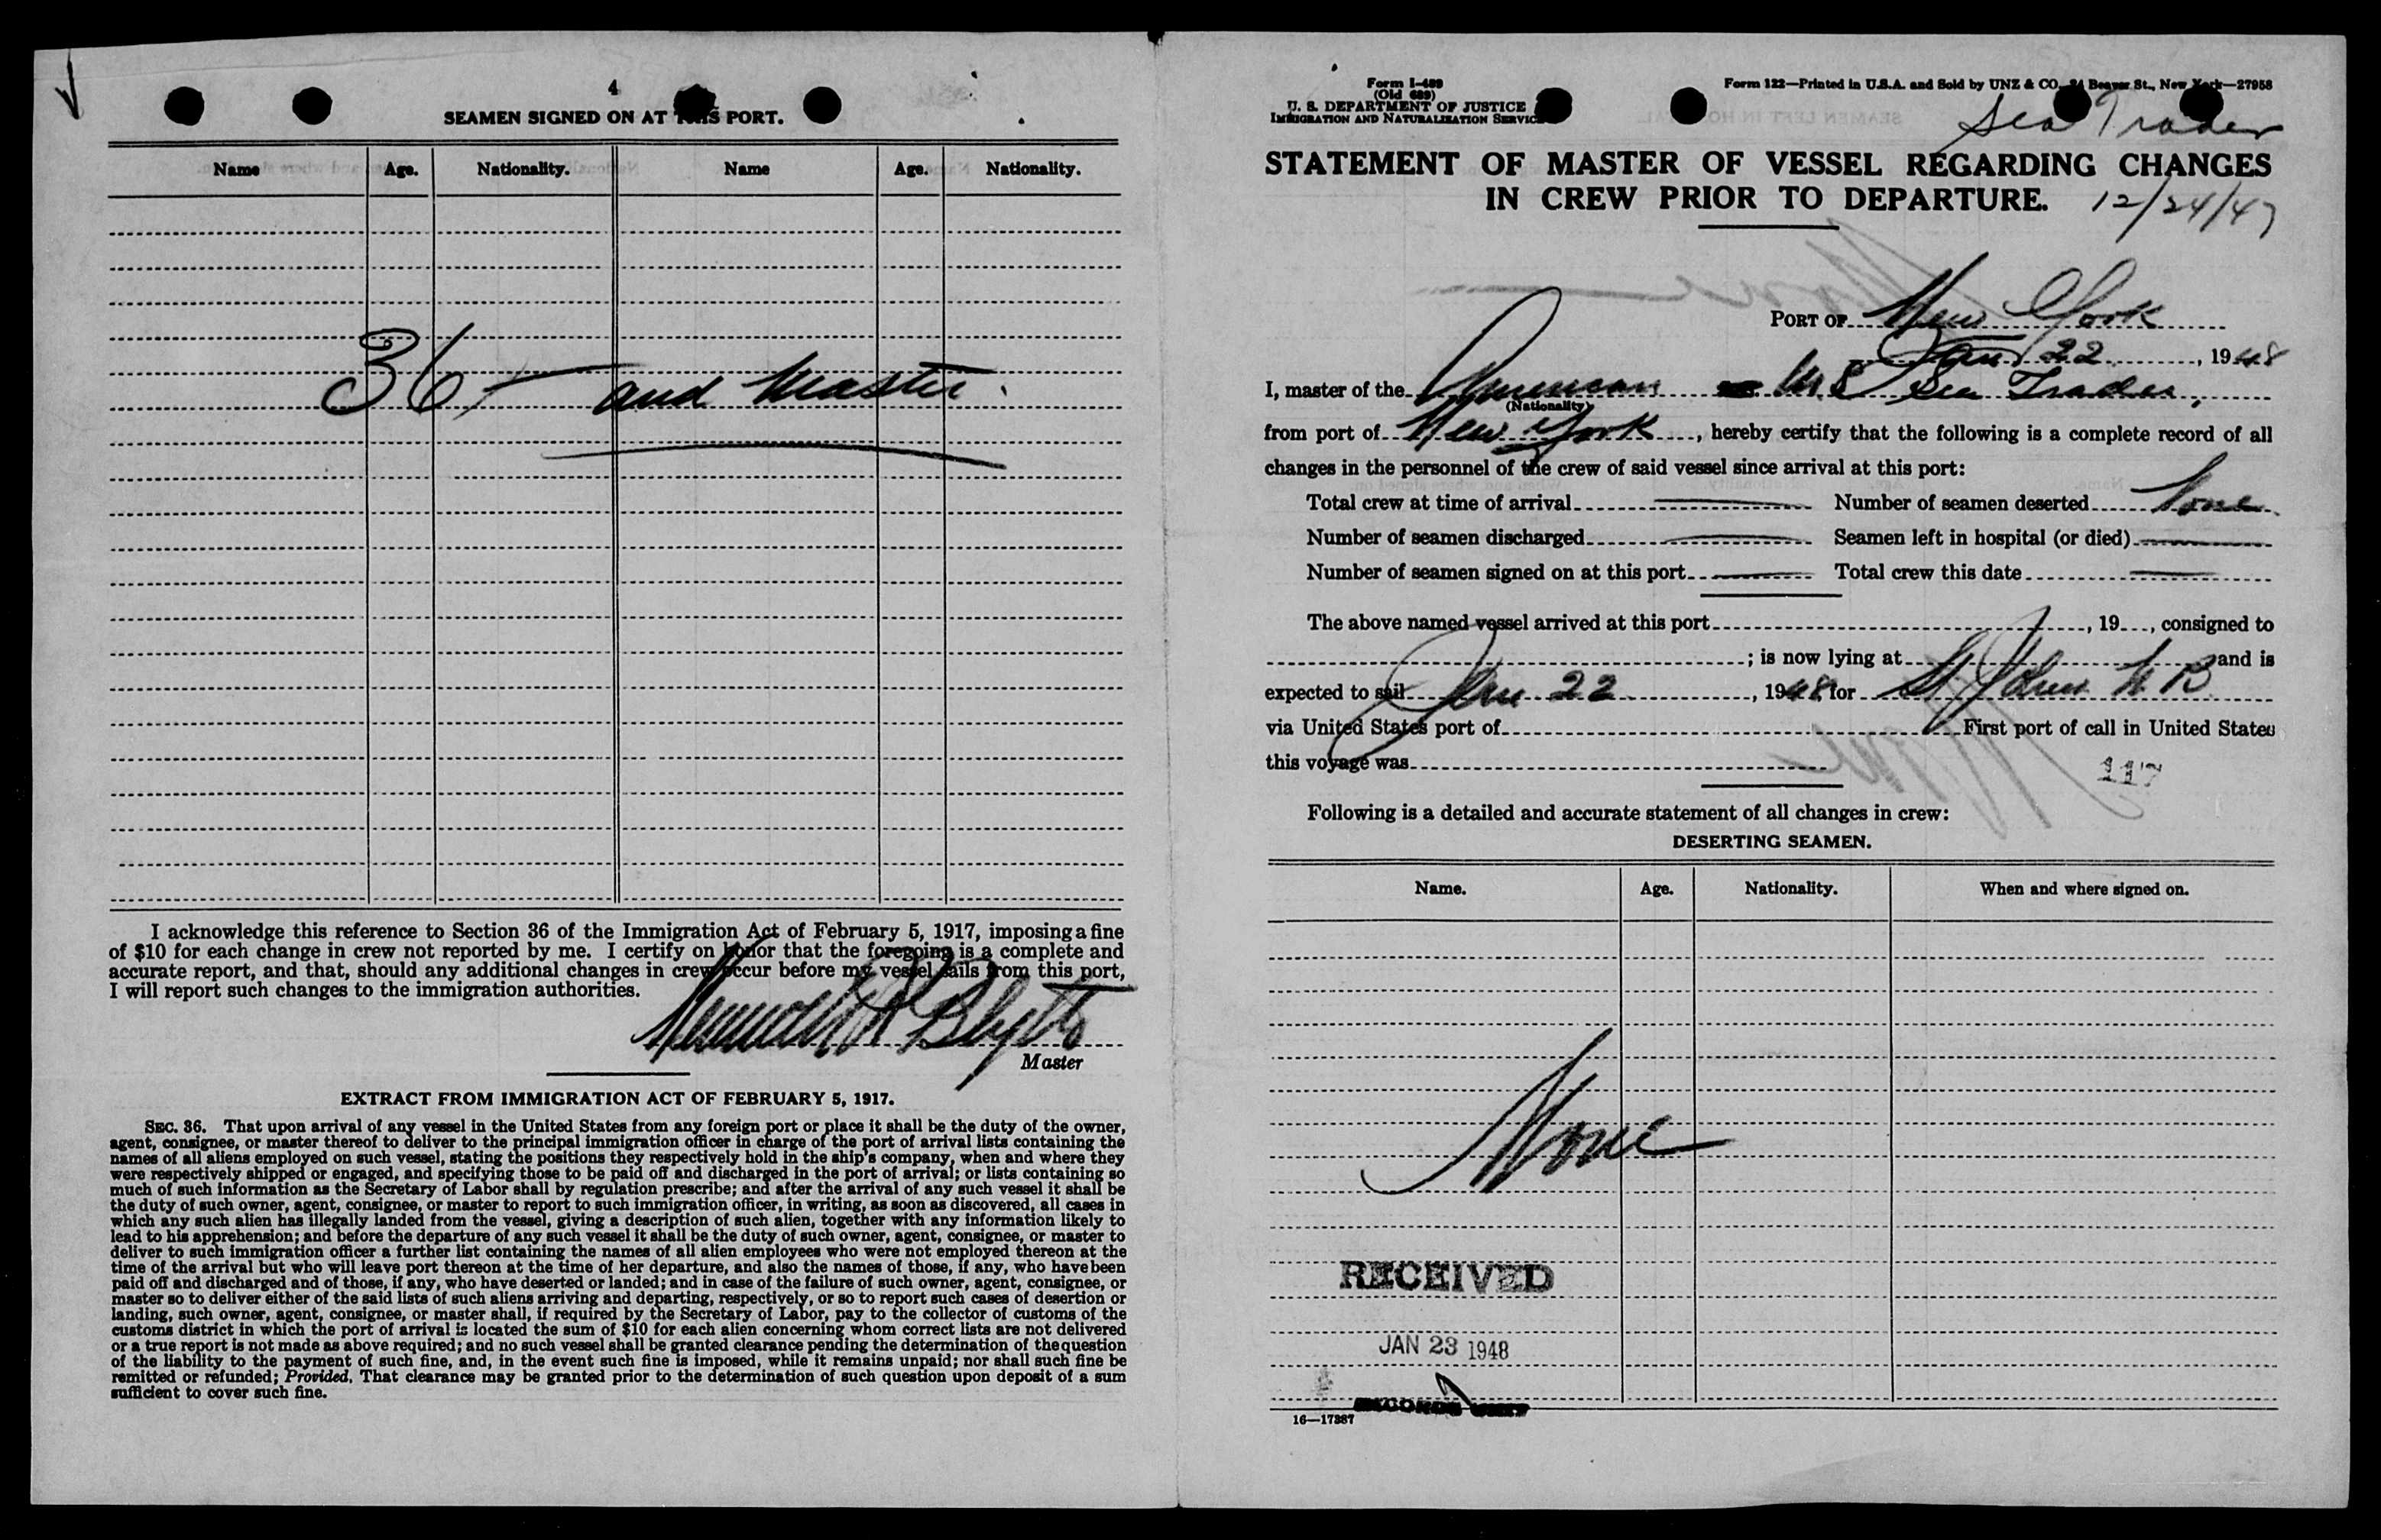 4
SEAMEN SIGNED ON AT THIS PORT.
Name Age. Nationality. Name Age. Nationality.
36 — and Master
I acknowledge this reference to Section 36 of the Immigration Act of February 5, 1917, imposing a fine
of $10 for each change in crew not reported by me. I certify on honor that the foregoing is a complete and
accurate report, and that, should any additional changes in crew occur before my vessel sails from this port,
I will report such changes to the immigration authorities.
Kenneth R Blyth
Master
EXTRACT FROM IMMIGRATION ACT OF FEBRUARY 5, 1917.
SEC. 36. That upon arrival of any vessel in the United States from any foreign port or place it shall be the duty of the owner,
agent, consignee, or master thereof to deliver to the principal immigration officer in charge of the port of arrival lists containing the
names of all aliens employed on such vessel, stating the positions they respectively hold in the ship's company, when and where they
were respectively shipped or engaged, and specifying those to be paid off and discharged in the port of arrival; or lists containing so
much of such information as the Secretary of Labor shall by regulation prescribe; and after the arrival of any such vessel it shall be
the duty of such owner, agent, consignee, or master to report to such immigration officer, in writing, as soon as discovered, all cases in
which any such alien has illegally landed from the vessel, giving a description of such alien, together with any information likely to
lead to his apprehension; and before the departure of any such vessel it shall be the duty of such owner, agent, consignee, or master to
deliver to such immigration officer a further list containing the names of all alien employees who were not employed thereon at the
time of the arrival but who will leave port thereon at the time of her departure, and also the names of those, if any, who have been
paid off and discharged and of those, if any, who have deserted or landed; and in case of the failure of such owner, agent, consignee, or
master so to deliver either of the said lists of such aliens arriving and departing, respectively, or so to report such cases of desertion or
landing, such owner, agent, consignee, or master shall, if required by the Secretary of Labor, pay to the collector of customs of the
customs district in which the port of arrival is located the sum of $10 for each alien concerning whom correct lists are not delivered
or a true report is not made as above required; and no such vessel shall be granted clearance pending the determination of the question
of the liability to the payment of such fine, and, in the event such fine is imposed, while it remains unpaid; nor shall such fine be
remitted or refunded; Provided, That clearance may be granted prior to the determination of such question upon deposit of a sum
sufficient to cover such fine.
Form I-489
(Old 689)
U. S. DEPARTMENT OF JUSTICE
IMMIGRATION AND NATURALIZATION SERVICE
Form 122—Printed in U.S.A. and Sold by UNZ & CO., 24 Beaver St., New York—27958
Sea Trader
STATEMENT OF MASTER OF VESSEL REGARDING CHANGES
IN CREW PRIOR TO DEPARTURE. 12/24/47
PORT OF New York
Jan 22, 1948
I, master of the American M.S. Sea Trader,
(Nationality)
from port of New York, hereby certify that the following is a complete record of all
changes in the personnel of the crew of said vessel since arrival at this port:
Total crew at time of arrival Number of seamen deserted None
Number of seamen discharged Seamen left in hospital (or died)
Number of seamen signed on at this port Total crew this date
The above named vessel arrived at this port , 19 , consigned to
; is now lying at and is
expected to sail Jan 22, 1948, for St John N B
via United States port of First port of call in United States
this voyage was
117
Following is a detailed and accurate statement of all changes in crew:
DESERTING SEAMEN.
Name. Age. Nationality. When and where signed on.
None
RECEIVED
JAN 23 1948
RECORDS UNIT
16—17387